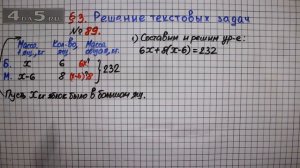 §3. Решение текстовых задач
№ 89.
Масса 1 ящ, кг. Кол-во ящ Масса общая, кг.
Б. x 6 6x
М. x-6 8 (x-6)·8
} 232
Пусть x кг яблок было в большом ящ.
1) Составим и решим ур-е:
6x+8(x-6)=232